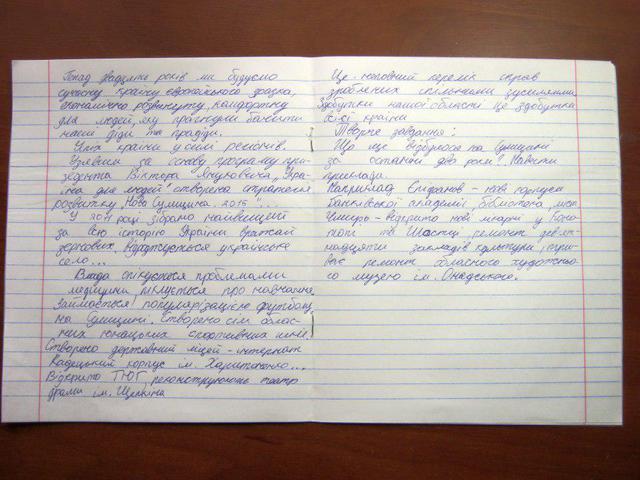 Понад двадцять років ми будуємо
сучасну країну європейського зразка,
економічно розвинуту, комфортну
для людей, яку прагнули бачити
наші діди та прадіди.
Успіх країни у силі регіонів.
Узявши за основу програму пре-
зидента Віктора Януковича „Укра-
їна для людей" створена стратегія
розвитку „Нова Сумщина. 2015"...
У 2011 році зібрано найвищий
за всю історію України врожай
зернових. Відроджується українське
село...
Влада опікується проблемами
медицини піклується про навчання.
Займається популяризацією футболу
на Сумщині. Створено сім облас-
них юнацьких спортивних шкіл.
Створено державний ліцей - інтернат
Кадецький корпус ім. Харитоненко...
Відкрито ТЮГ, реконструюють театр
драми ім. Щепкіна
Це неповний перелік справ
зроблених спільними зусиллями
Здобутки нашої області це здобутки
всієї країни
Творче завдання:
Що ще відбулося на Сумщині
за останні два роки? Навести
приклади.
Наприклад Єпіфанов - нові корпуси
банківської академії, бібліотека, міст
Чмирь - відкрито нові лікарні у Коно-
топі та Шостці, ремонт дев'ят-
надцяти закладів культури,
ремонт обласного художньо-
го музею ім. Онацького.